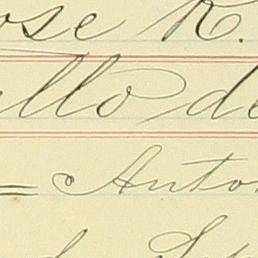 ose R.
llo de
= Anton